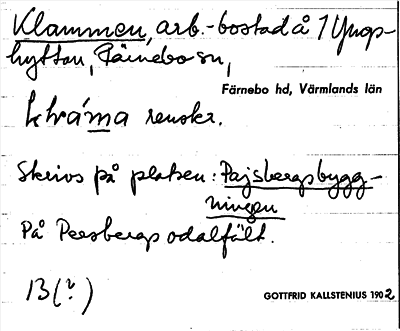 Klammen, arb.-bostad å 1 Yngs-
hyttan, Färnebo sn,
Färnebo hd, Värmlands län
renskr.
Skrivs på platsen: Pajsbergsbygg-
ningen
På Persbergs odalfält.
13(?)
GOTTFRID KALLSTENIUS 1902